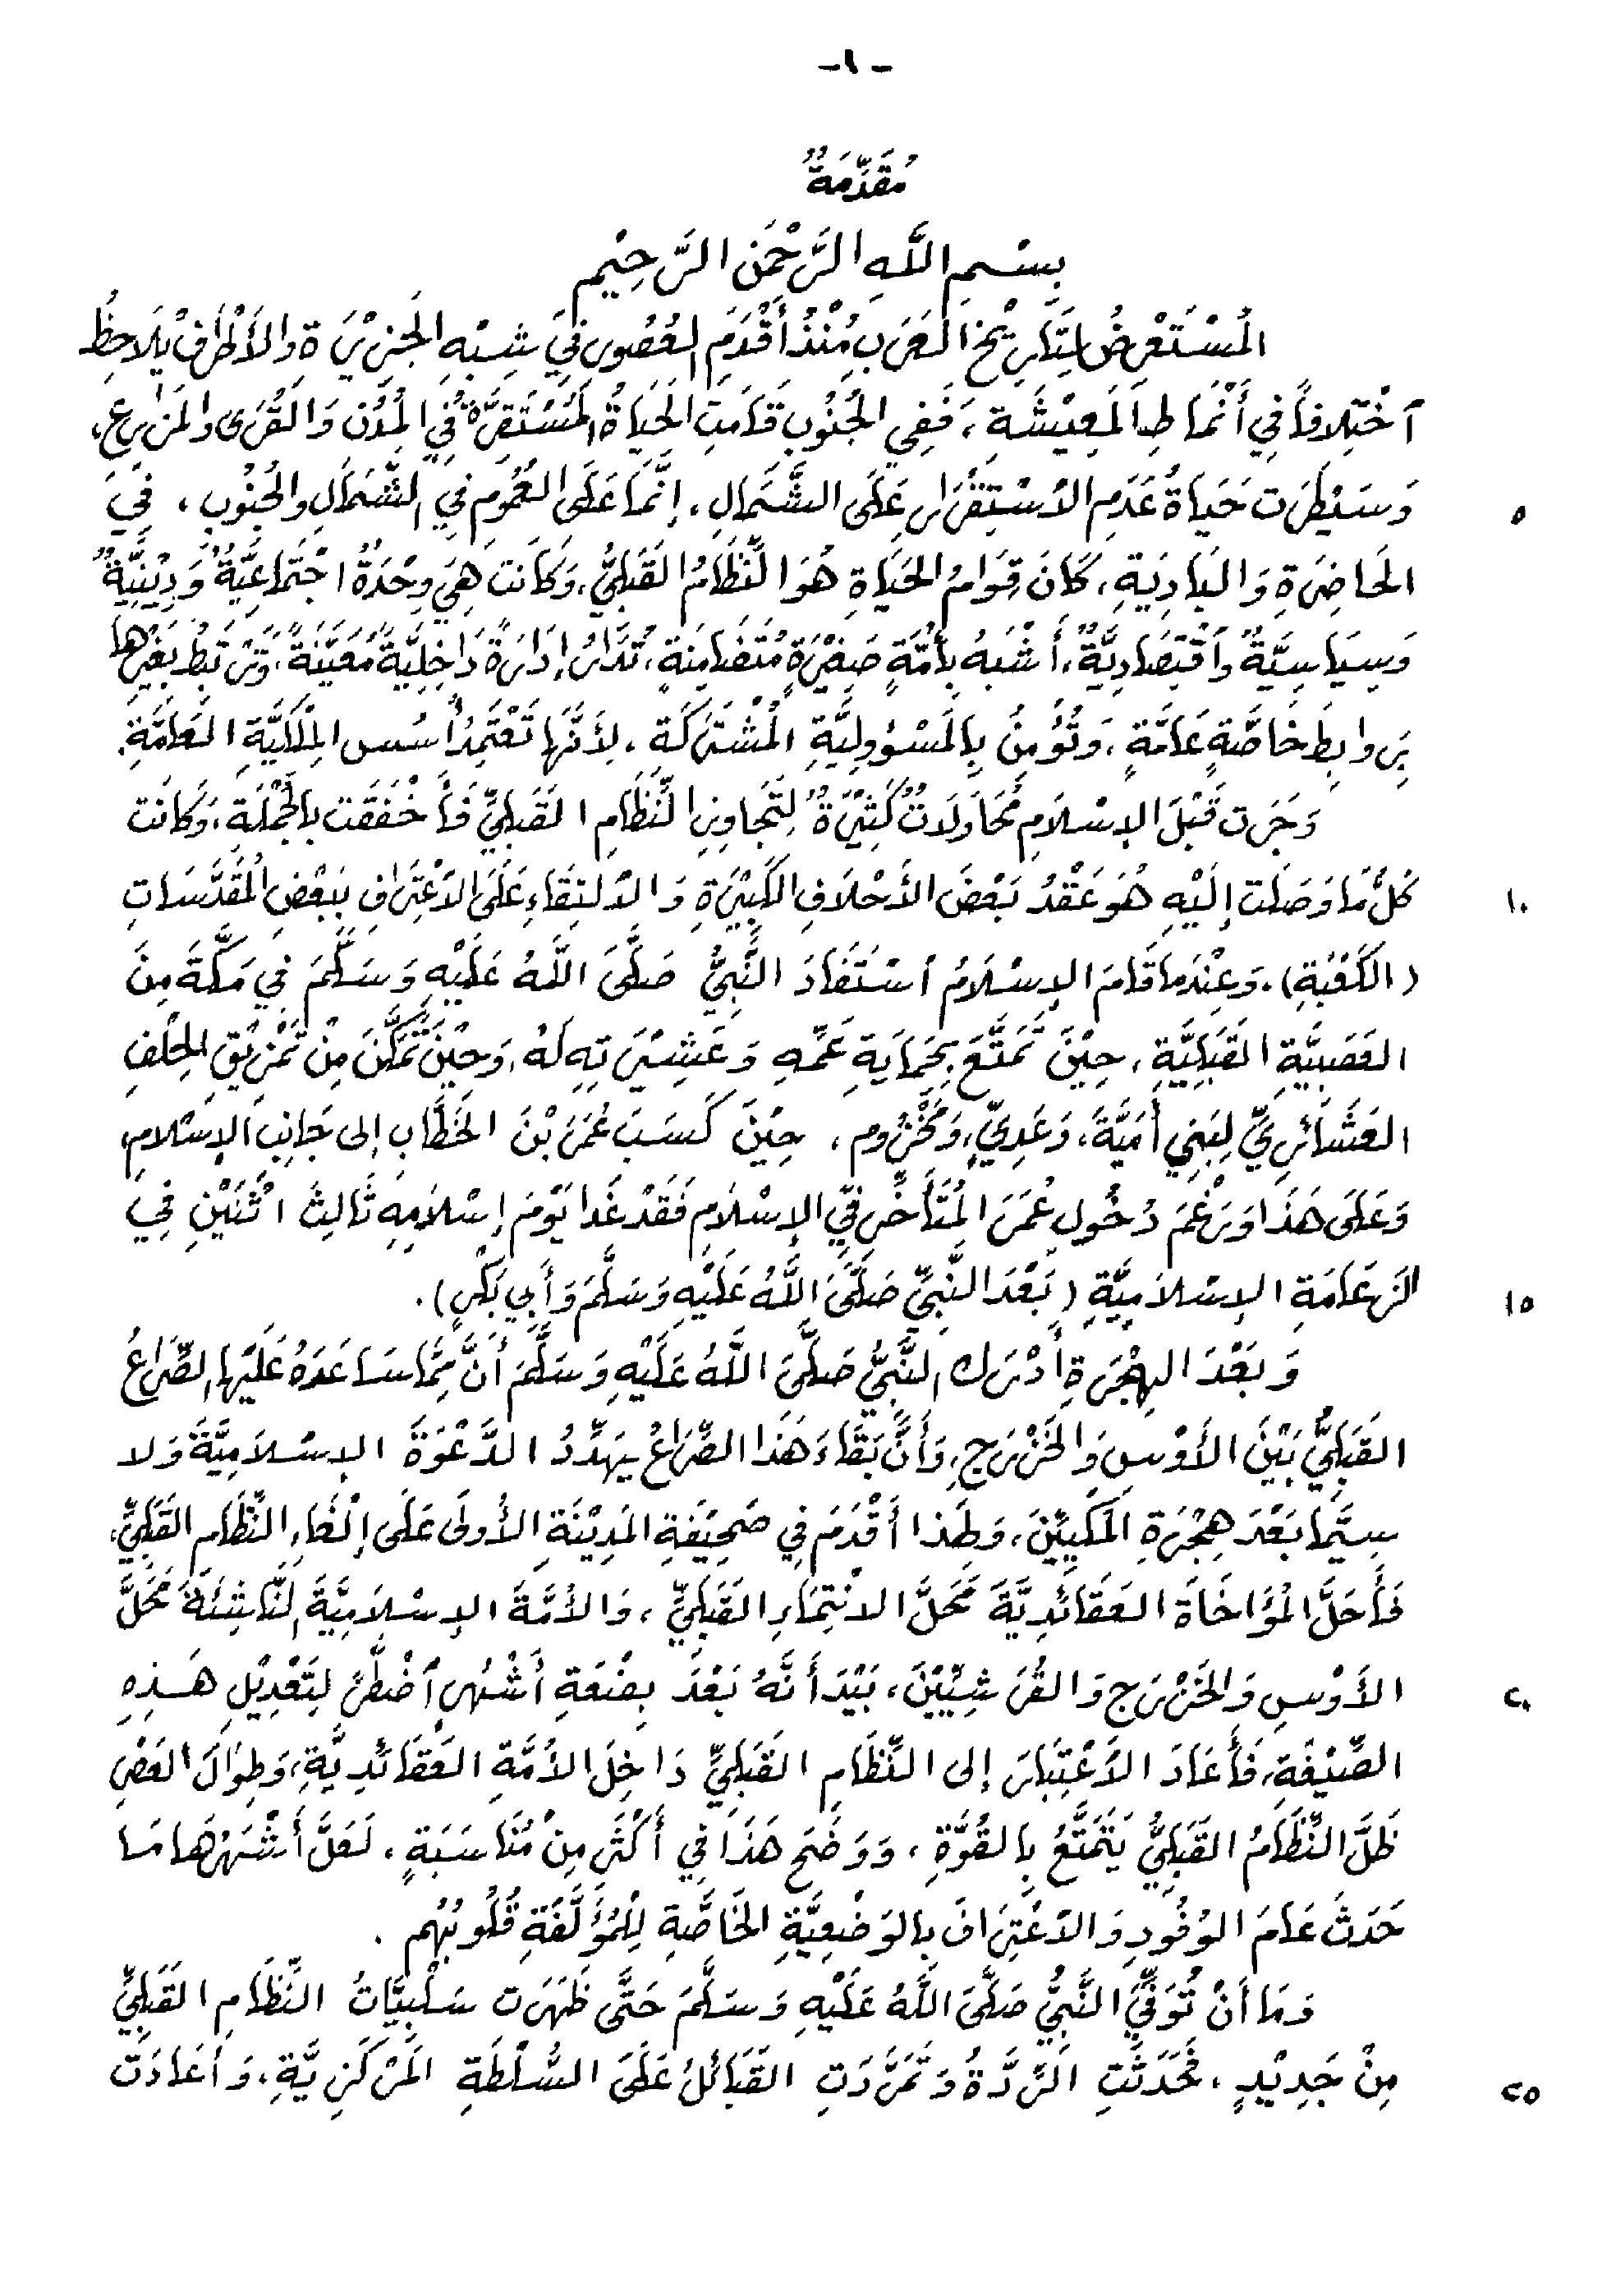 -١-
مُقَدِّمَةٌ
بِسْمِ اللَّهِ الرَّحْمَنِ الرَّحِيْمِ
المُسْتَعْرِضُ لِتَارِيْخِ العَرَبِ مُنْذُ أَقْدَمِ العُصُورِ فِي شِبْهِ الجَزِيْرَةِ وَالأَطْرَافِ يُلَاحِظُ
ٱخْتِلافاً فِي أَنْمَاطِ المَعِيْشَةِ، فَفِي الجُنُوبِ قَامَتِ الحَيَاةُ المُسْتَقِرَّةُ فِي المُدُنِ وَالقُرَى وَالمَزَارِعِ،
٥ وَسَيْطَرَت حَيَاةُ عَدَمِ الاسْتِقْرَارِ عَلَى الشَّمَالِ، إنَّمَا عَلَى العُمُومِ فِي الشَّمَالِ وَالجُنُوبِ، فِي
الحَاضِرَةِ وَالبَادِيَةِ، كَانَ قِوَامُ الحَيَاةِ هُوَ النِّظَامُ القَبَلِيُّ، وَكَانَت هِيَ وِحْدَةُ اجْتِمَاعِيَّةٌ وَدِيْنِيَّةٌ
وَسِيَاسِيَّةٌ وَاقْتِصَادِيَّةٌ، أَشْبَهُ بِأُمَّةٍ صَغِيْرَةٍ مُتَضَامِنَةٍ، تُدَارُ إدَارَةً دَاخِلِيَّةً مُعَيَّنَةً، وَتَرْتَبِطُ بِغَيْرِهَا
بِرَوابِطَ خَاصَّةٍ عَامَّةٍ، وَتُؤمِنُ بِالمَسْؤولِيَّةِ المُشْتَرَكَةِ، لِأَنَّهَا تَعْتَمِدُ أُسُس المِلْكِيَّةِ العَامَّةِ.
وَجَرَت قَبْلَ الإسْلَامِ مُحَاوَلَاتٌ كَثِيْرَةٌ لِتَجَاوِزِ النِّظَامِ القَبَلِيِّ فَأَخْفَقَت بالجُمْلَةِ، وَكَانَت
١٠ كُلُّ مَا وَصَلَت إلَيْهِ هُوَ عَقْدُ بَعْضَ الأَحْلَافِ الكَبِيْرَةِ وَالالتِقَاءِ عَلَى الاعْتِرَافِ بِبَعْضِ المُقَدَّسَاتِ
(الكَعْبَةِ). وَعِنْدَما قَامَ الإسْلَامُ ٱسْتَفَادَ النَّبِيُّ صَلَّى اللَّهُ عَلَيْهِ وَسَلَّمَ فِي مَكَّةَ مِنَ
العَصَبِيَّةِ القَبَلِيَّةِ، حِيْنَ تَمَتَّعَ بِحِمَايَةِ عَمِّهِ وَعَشِيْرَتِهِ لَهُ، وَحِيْنَ تَمَكَّنَ مِنْ تَمْزِيْقِ الحِلْفِ
العَشَائِرِيِّ لِبَنِي أُمَيَّةَ، وَعَدِيٍّ، وَمَخْزُوم، حِيْنَ كَسَبَ عُمَرَ بْنَ الخَطَّابِ إلى جَانِبِ الإسْلامِ،
وَعَلَى هَذَا وَرَغْمَ دُخُولِ عُمَرَ المُتَأَخِّرِ فِي الإسْلَامِ فَقَدْ غَدَا يَوْمَ إسْلَامِهِ ثَالِثَ اثْنَيْنِ فِي
١٥ الزَّعَامَةِ الإسْلَامِيَّةِ (بَعْدَ النَّبِيِّ صَلَّى اللَّهُ عَلَيْهِ وَسَلَّمَ وَأَبِي بَكْرٍ).
وَبَعْدَ الهِجْرَةِ أَدْرَكَ النَّبِيُّ صَلَّى اللَّهُ عَلَيْهِ وَسَلَّمَ أنَّ مِمَّا سَاعَدَهُ عَلَيْهَا الصِّرَاعُ
القَبَلِيُّ بَيْنَ الأَوْسِ وَالخَزْرَجِ، وَأَنَّ بَقَاءَ هَذَا الصِّرَاعُ يُهَدِّدُ الدَّعْوَةَ الإسْلَامِيَّةَ وَلا
سِيَّمَا بَعْدَ هِجْرَةِ المَكِّيِّيْنَ، وَلِهَذا أَقْدَمَ فِي صَحِيْفَةِ المَدِيْنَةِ الأُولَى عَلَى إلْغَاءِ النِّظَامِ القَبَلِيِّ،
فَأَحَلَّ المُؤَاخَاةَ العَقَائِدِيَّةَ مَحَلَّ الانْتِمَاءِ القَبَلِيِّ، وَالأُمَّةَ الإسْلَامِيَّةَ النَّاشِئَةَ مَحَلَّ
٢٠ الأَوْسِ وَالخَزْرَجِ وَالقُرَشِيِّيْنَ، بَيْدَ أَنَّهُ بَعْدَ بِضْعَةِ أَشْهُرٍ ٱضْطُرَّ لِتَعْدِيْلِ هَذِهِ
الصِّيْغَةِ، فَأَعَادَ الاعْتِبَارَ إلى النِّظَامِ القَبَلِيِّ دَاخِلَ الأُمَّةِ العَقَائِدِيَّةِ، وَطِوَالَ العَصْرِ
ظَلَّ النِّظَامُ القَبَلِيُّ يَتَمَتَّعُ بِالقُوَّةِ، وَوَضَحَ هَذَا فِي أَكْثَرِ مِنْ مُنَاسَبَةٍ، لَعَلَّ أَشْهَرُهَا مَا
حَدَثَ عَامَ الوُفُودِ وَالاعْتِرَافَ بِالوَضْعِيَّةِ الخَاصَّةِ لِلْمُؤَلَّفَةِ قُلُوبُهُم.
وَمَا أنْ تُوُفِّيَ النَّبِيُّ صَلَّى اللَّهُ عَلَيْهِ وَسَلَّمَ حَتَّى ظَهَرَت سَلْبِيَّاتُ النِّظَامِ القَبَلِيِّ
٢٥ مِنْ جَدِيْدٍ، فَحَدَثَتِ الرِّدَّةُ وَتَمَرَّدَتِ القَبَائِلُ عَلَى السُّلْطَةِ المَرْكَزِيَّةِ، وَأَعَادَتْ